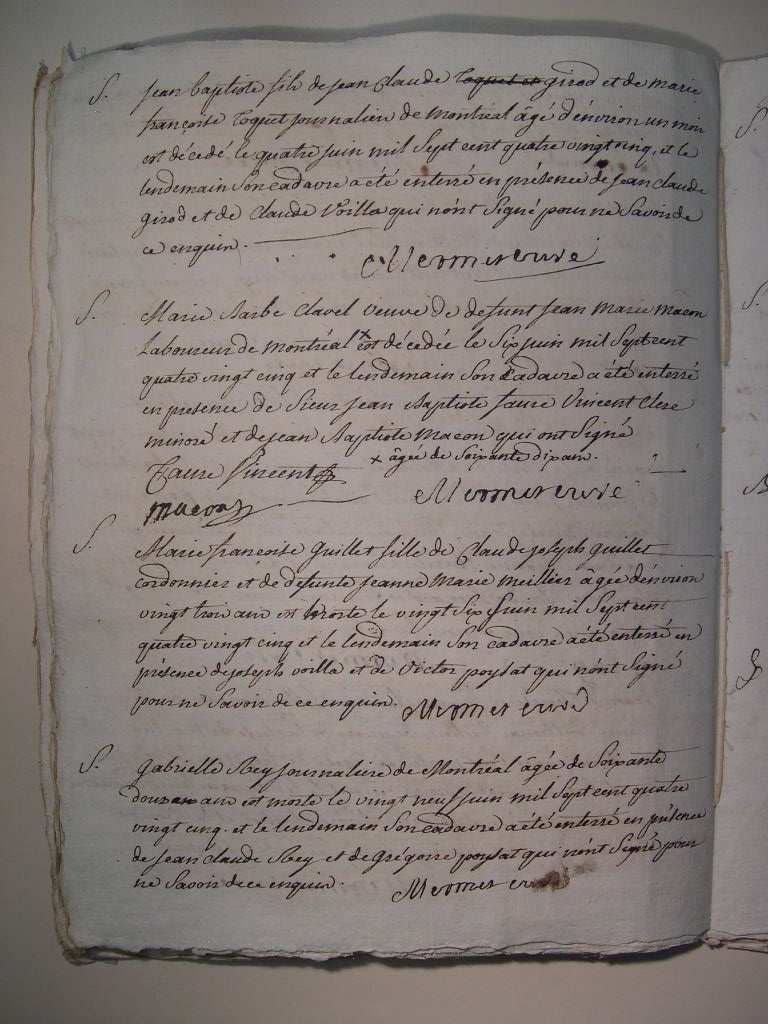 S. jean baptiste fils de jean Claude toquet et girod et de marie
françoise toquet journalier de montréal âgé d'énviron un mois
est décedé le quatre juin mil sept cent quatre vingt cinq, et le
lendemain son cadavre a été enterré en présence de jean claude
girod et de Claude Voilla qui n'ont signé pour ne savoir de
ce enquis.
Mermet curé
S. Marie Barbe Clavel veuve de defunt jean marie macon
Laboureur de montréal x est décedée le six juin mil sept cent
quatre vingt cinq et le lendemain son cadavre a été enterré
en presence de sieur jean Baptiste faure Vincent Clerc
minoré et de jean Baptiste macon qui ont signé
x âgée de soixante dix ans.
Faure Vincent
macon
Mermet curé
S. Marie françoise guillet fille de Claude joseph guillet
cordonnier et de défunte jeanne Marie meillier âgée d'énvirion
vingt trois ans est morte le vingt six juin mil sept cent
quatre vingt cinq et le lendemain son cadavre a été enterré en
présence de joseph voilla et de victor poysat qui n'ont signé
pour ne savoir de ce enquis.
Mermet curé
S. gabrielle Rey journaliere de Montréal âgée de soixante
douze ans est morte le vingt neuf juin mil sept cent quatre
vingt cinq. et le lendemain son cadavre a été enterré en présence
de jean claude Rey et de grégoire poysat qui n'ont signé pour
ne savoir de ce enquis.
Mermet curé